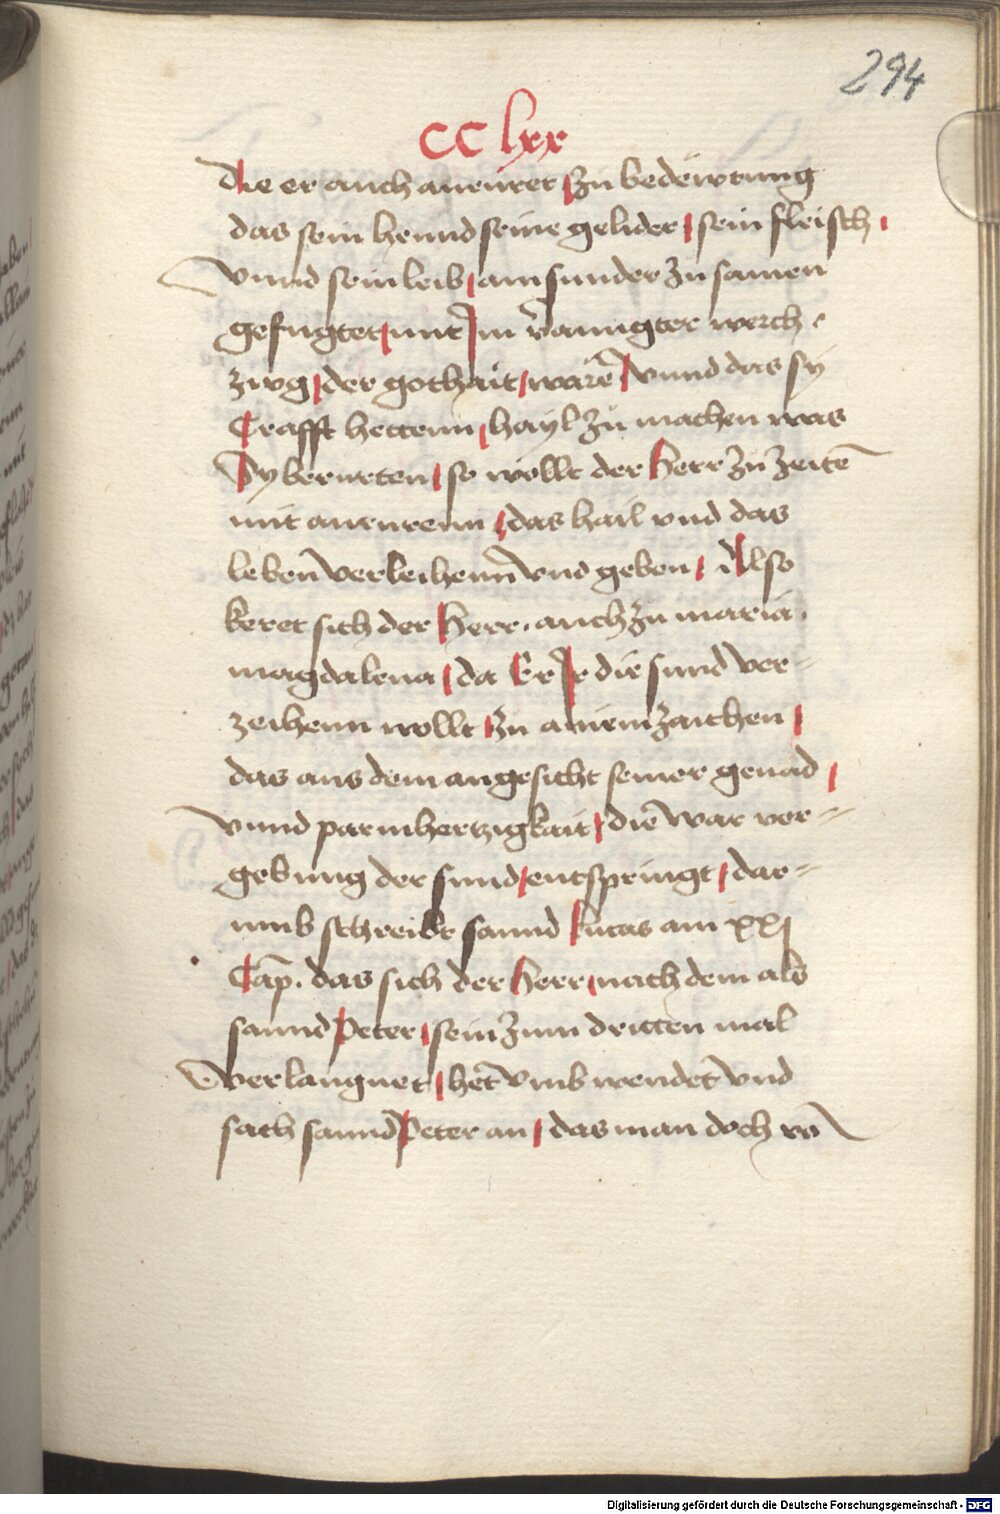 294
CClxx
die er auch anruret / zu bedewtung
das sein hennd seine gelider / sein fleisch /
vnnd sein leib / am sunder zu samen
gefugter / mit Im verainigter werch
zwg / der gothait / warē / vnnd das sy
Crafft hettenn / hayl zu machen was
Sy berurten / so wollt der Herr zu zeitē
mit anrurenn / das hail vnd das
leben verleihenn vnd geben / Also
keret sich der Herr. auch zu maria.
magdalena / da Er Ir die sund ver-
zeihenn wollt / zu ainem zaichen /
das aus dem angesicht seiner genad /
vnnd parmhertzigkait / die war ver-
gebung der sund / entspringt / dar-
umb schreibt sannd Lucas am xxj
Cap. das sich der Herr / nach dem als
sannd Peter / sein zum dritten mal
verlaugnet / het vmb wendet vnd
sach sannd Peter an / das man doch vō